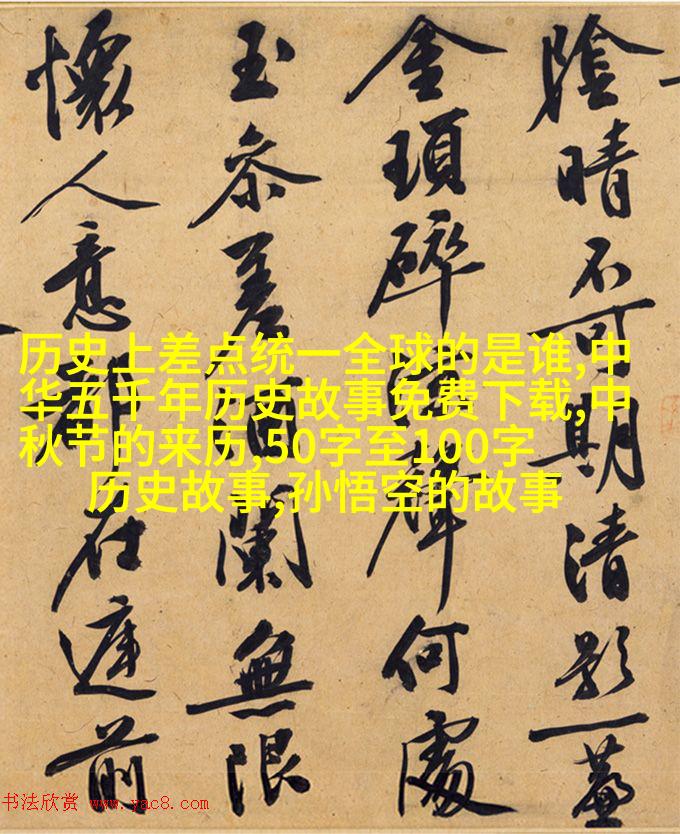 陰晴不可期清影一
金瑣碎聲何處
玉參差酒闌無限
懷人意都在前
历史上差点统一全球的是谁,中
华五千年历史故事免费下载,中
秋节的来历,50字至100字
历史故事,孙悟空的故事
书法欣赏 www.yac8.com